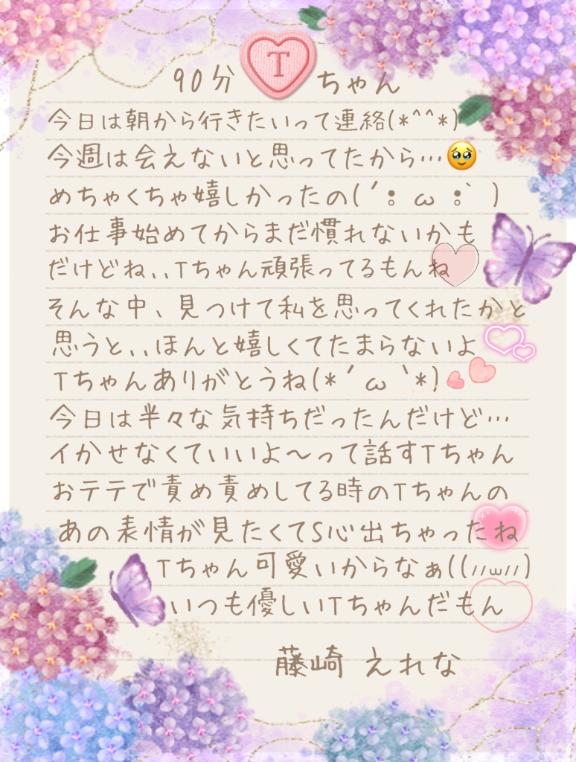 90分 T ちゃん
今日は朝から行きたいって連絡(*^^*)
今週は会えないと思ってたから…🥹
めちゃくちゃ嬉しかったの(´；ω；`)
お仕事始めてからまだ慣れないかも
だけどね､､Tちゃん頑張ってるもんね
そんな中、見つけて私を思ってくれたかと
思うと､､ほんと嬉しくてたまらないよ
Tちゃんありがとうね(*´ω`*)
今日は半々な気持ちだったんだけど…
イかせなくていいよ〜って話すTちゃん
おテテで責め責めしてる時のTちゃんの
あの表情が見たくてS心出ちゃったね
Tちゃん可愛いからなぁ((//ω//)
いつも優しいTちゃんだもん
藤崎 えれな